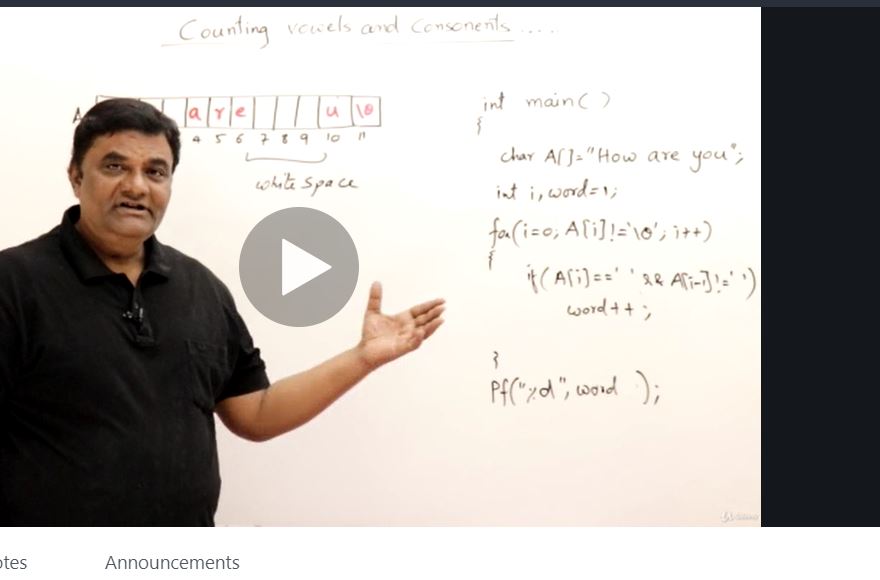 Counting vowels and Consonents....
A
a r e u \0
4 5 6 7 8 9 10 11
white space
int main( )
{
char A[]="How are you";
int i, word=1;
for(i=0; A[i]!='\0'; i++)
{
if(A[i]==' ' && A[i-1]!=' ')
word++;
}
Pf("%d", word );
Udemy
otes
Announcements